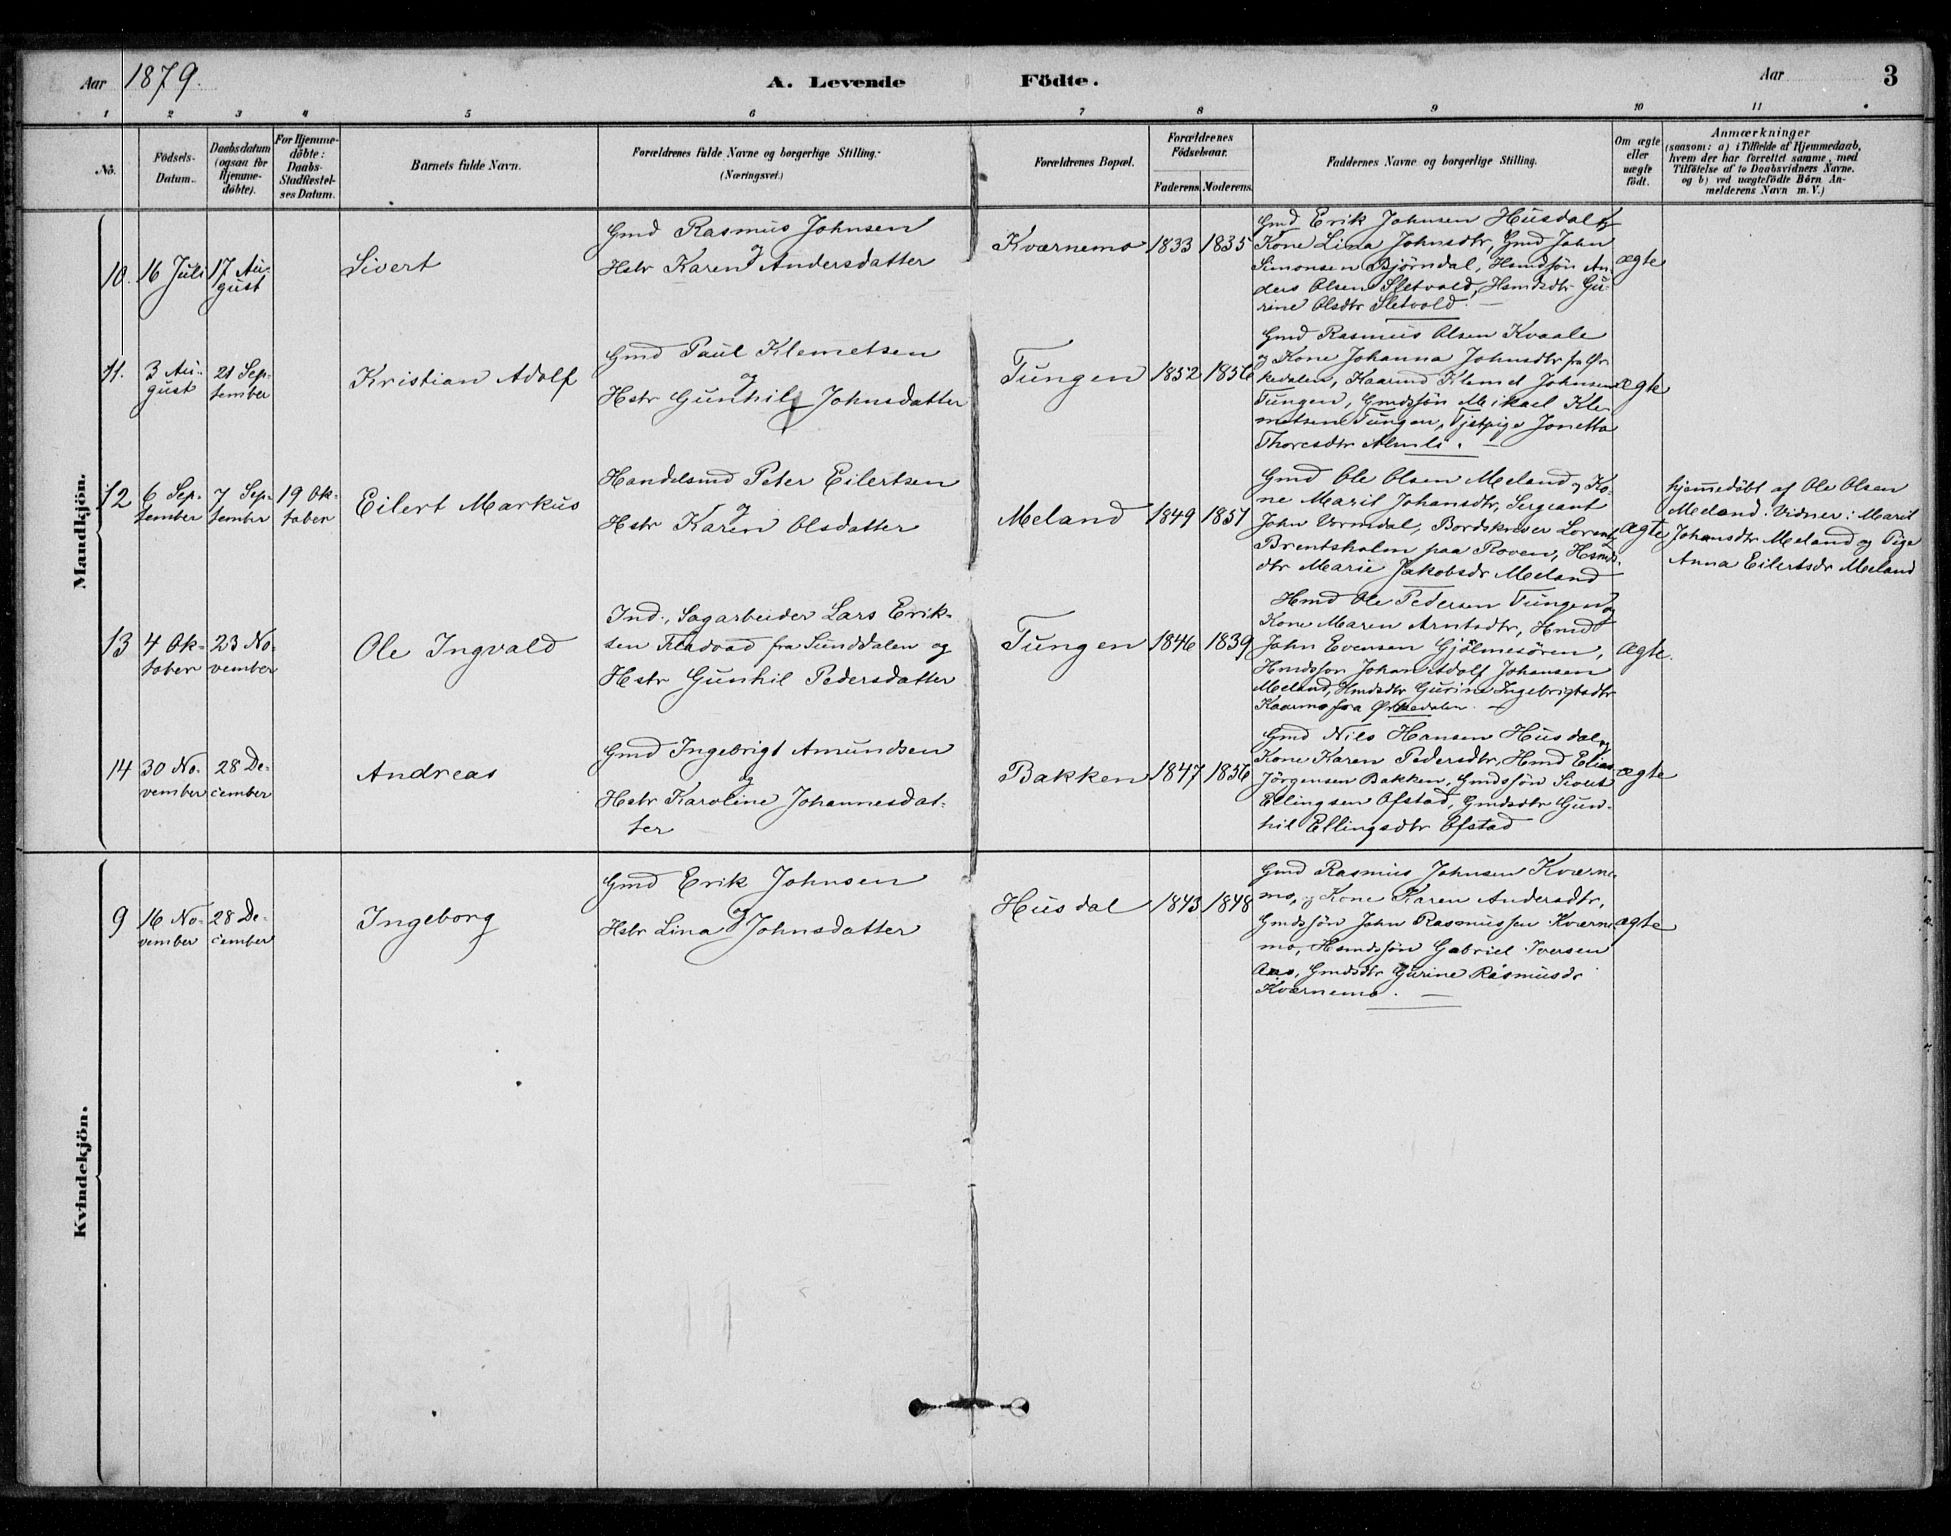 Aar 1879. A. Levende Födte. Aar 3
1 2 3 4 5 6 7 8 9 10 11
No.
Födsels-
Datum.
Daabsdatum
(ogsaa for
Hjemme-
döbte).
For Hjemme-
döbte:
Daabs-
Stadfæstel-
ses Datum.
Barnets fulde Navn.
Forældrenes fulde Navne og borgerlige Stilling.
(Næringsvei.)
Forældrenes Bopæl.
Forældrenes
Födselsaar.
Faderens. Moderens.
Faddernes Navne og borgerlige Stilling.
Om ægte
eller
uægte
födt.
Anmærkninger
(saasom: a) i Tilfælde af Hjemmedaab,
hvem der har forrettet samme, med
Tilföielse af to Daabsvidners Navne.
og b) ved uægtefödte Börn An-
melderens Navn m. V.)
Mandkjön.
10. 16 Juli
17 Au-
gust
Sivert
Gmd Rasmus Johnsen
og
Hstr Karen Andersdatter
Kværnemo 1833 1835
Gmd Erik Johnsen Husdal og
Kone Lina Johnsdtr, Gmd John
Simonsen Björndal, Hsmdsjön An-
ders Olsen Sletvold, Hsmdsdtr Gu-
rine Olsdtr Sletvold.
ægte
11. 3 Au-
gust
21 Sep-
tember
Kristian Adolf
Gmd Paul Klemetsen
og
Hstr Gunhil Johnsdatter
Tungen 1852 1856
Gmd Rasmus Olsen Kvaale
og Kone Johanna Johnsdtr fra Ør-
kedalen, Kaarmd Klemet Johnsen
Tungen, Gmdssön Mikael Kle-
metsen Tungen, Tjstpige Jonetta
Thoresdtr Almli.
ægte
12 6 Sep-
tember
7 Sep-
tember
19 Ok-
tober
Eilert Markus
Handelsmd Peter Eilertsen
og
Hstr Karen Olsdatter
Meland 1849 1851
Gmd Ole Olsen Meland og Ko-
ne Marit Johansdtr, Sergeant
John Vormdal, Bordskriver Lorents
Brentsholm paa Roven, Hsmds-
dtr Marie Jakobsdr Meland
ægte
hjemmedöbt af Ole Olsen
Meland. Vidner: Marit
Johansdtr Meland og Pige
Anna Eilertsdr Meland
13 4 Ok-
tober
23 No-
vember
Ole Ingvald
Ind., Sagarbeider Lars Erik-
sen Fladvad fra Sunddalen og
Hstr Gunhil Pedersdatter
Tungen 1846 1839
Hmd Ole Pedersen Tungen og
Kone Maren Arntsdtr, Hmd
John Evensen Gjölmesören,
Hmdssön Johan Adolf Johansen
Meland, Hmdsdtr Gurine Ingebrigtsdtr
Kaarmo fra Ørkedalen.
ægte.
14 30 No-
vember
28 De-
cember
Andreas
Gmd Ingebrigt Amundsen
og
Hstr Karoline Johannesdat-
ter
Bakken 1847 1856
Gmd Nils Hansen Husdal og
Kone Karen Pedersdtr, Hmd Elias
Jörgensen Bakken, Gmdssön Sivert
Ellingsen Ofstad, Gmdsdtr Gun-
hil Ellingsdtr Ofstad
ægte
Kvindekjön.
9 16 No-
vember
28 De-
cember
Ingeborg
Gmd Erik Johnsen
og
Hstr Lina Johnsdatter
Husdal 1843 1848
Gmd Rasmus Johnsen Kværne-
mo, og Kone Karen Andersdtr,
Gmdssön John Rasmussen Kværne-
mo, Hsmdssön Gabriel Iversen
Aas, Gmdsdtr Gurine Rasmusdr
Kværnemo.
ægte